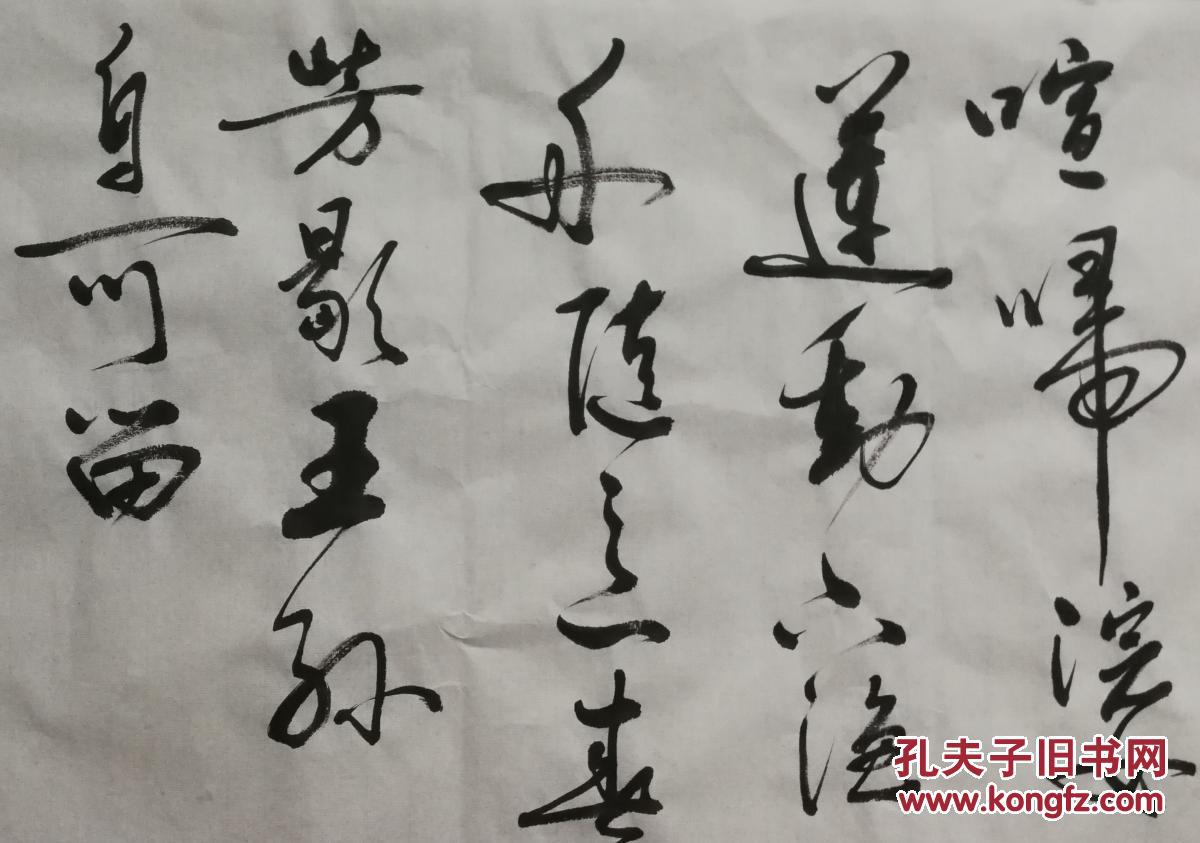 喧歸浣女
蓮動下渔
舟随意春
芳歇王孙
自可留
孔夫子旧书网
www.kongfz.com